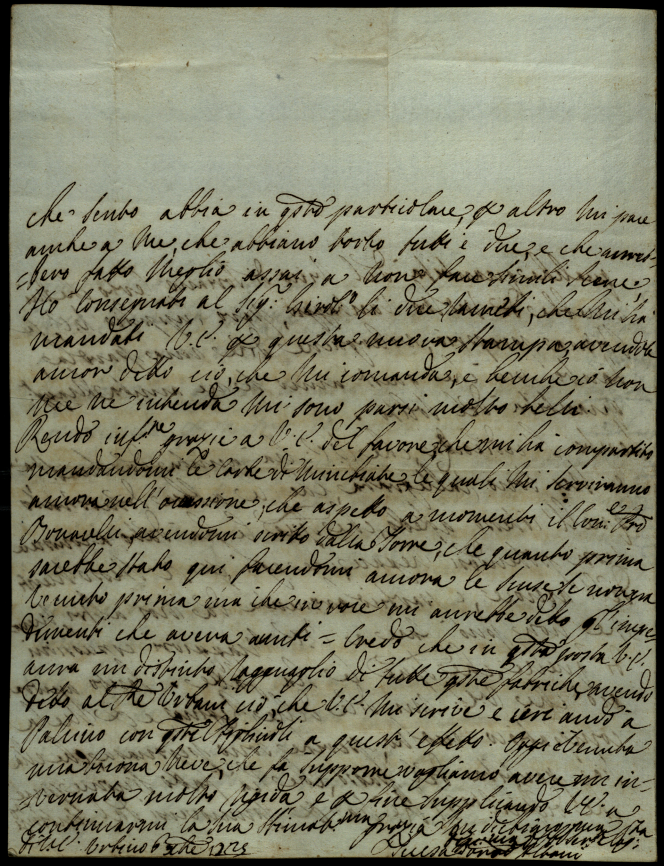 che sento abbia in qsto particolare, p altro mi pare
anche a me, che abbiano torto tutti e due, e che avreb-
=bero fatto meglio assai a non fare simili scene
Ho consegnati al Sig: li due rametti, che mi ha
mandati V.E. p questa nuova stampa avendole
ancor detto ciò, che mi comanda, e benche io non
me ne intenda mi sono parsi molto belli
Rendo inf.te grazie a V.E. del favore, che mi ha compartito
mandandomi le carte di Minchiate, le quali mi serviranno
ancora nell'occasione, che aspetto a momenti il Con:
Bonarelli avendomi scritto dalla Torre, che quanto prima
sarebbe stato qui facendomi ancora le scuse, se non era
venuto prima ma che in voce mi avrebbe detto gl'impe-
dimenti che aveva avuti = Credo che in qsta posta V.E.
avrà un distinto ragguaglio di tutte qste fabriche, avendo
detto al Urbani ciò, che V.E. mi scrive e ieri andò a
Palmo con qsti a quest'effetto. Oggi è venuta
una buona neve, che fa supporre vogliamo avere un in-
=vernata molto rigida e p fine supplicando V.E. a
continuarmi la sua stimat.ma grazia mi
di V.E. Urbino 1723 Teresa Albani